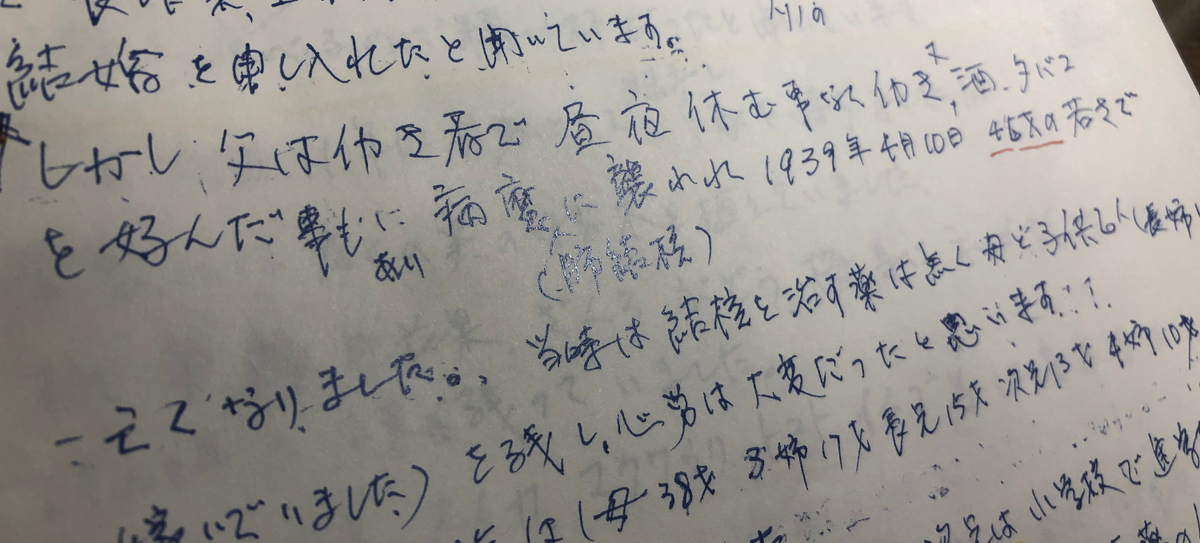 結婚を申し入れたと聞いています。
しかし、父は働き者で昼夜休む事なく働き、又酒、タバコ
を好んだ事もあり病魔に襲われ1939年4月10日 45才の若さで
(肺結核)
なりました。当時は結核を治す薬は無く母と子供6人(長姉
嫁いでいました)を残し、心労は大変だったと思います!!
は(母38才 3姉17才 長兄15才 次兄13才 4姉10才
次兄は小学校で